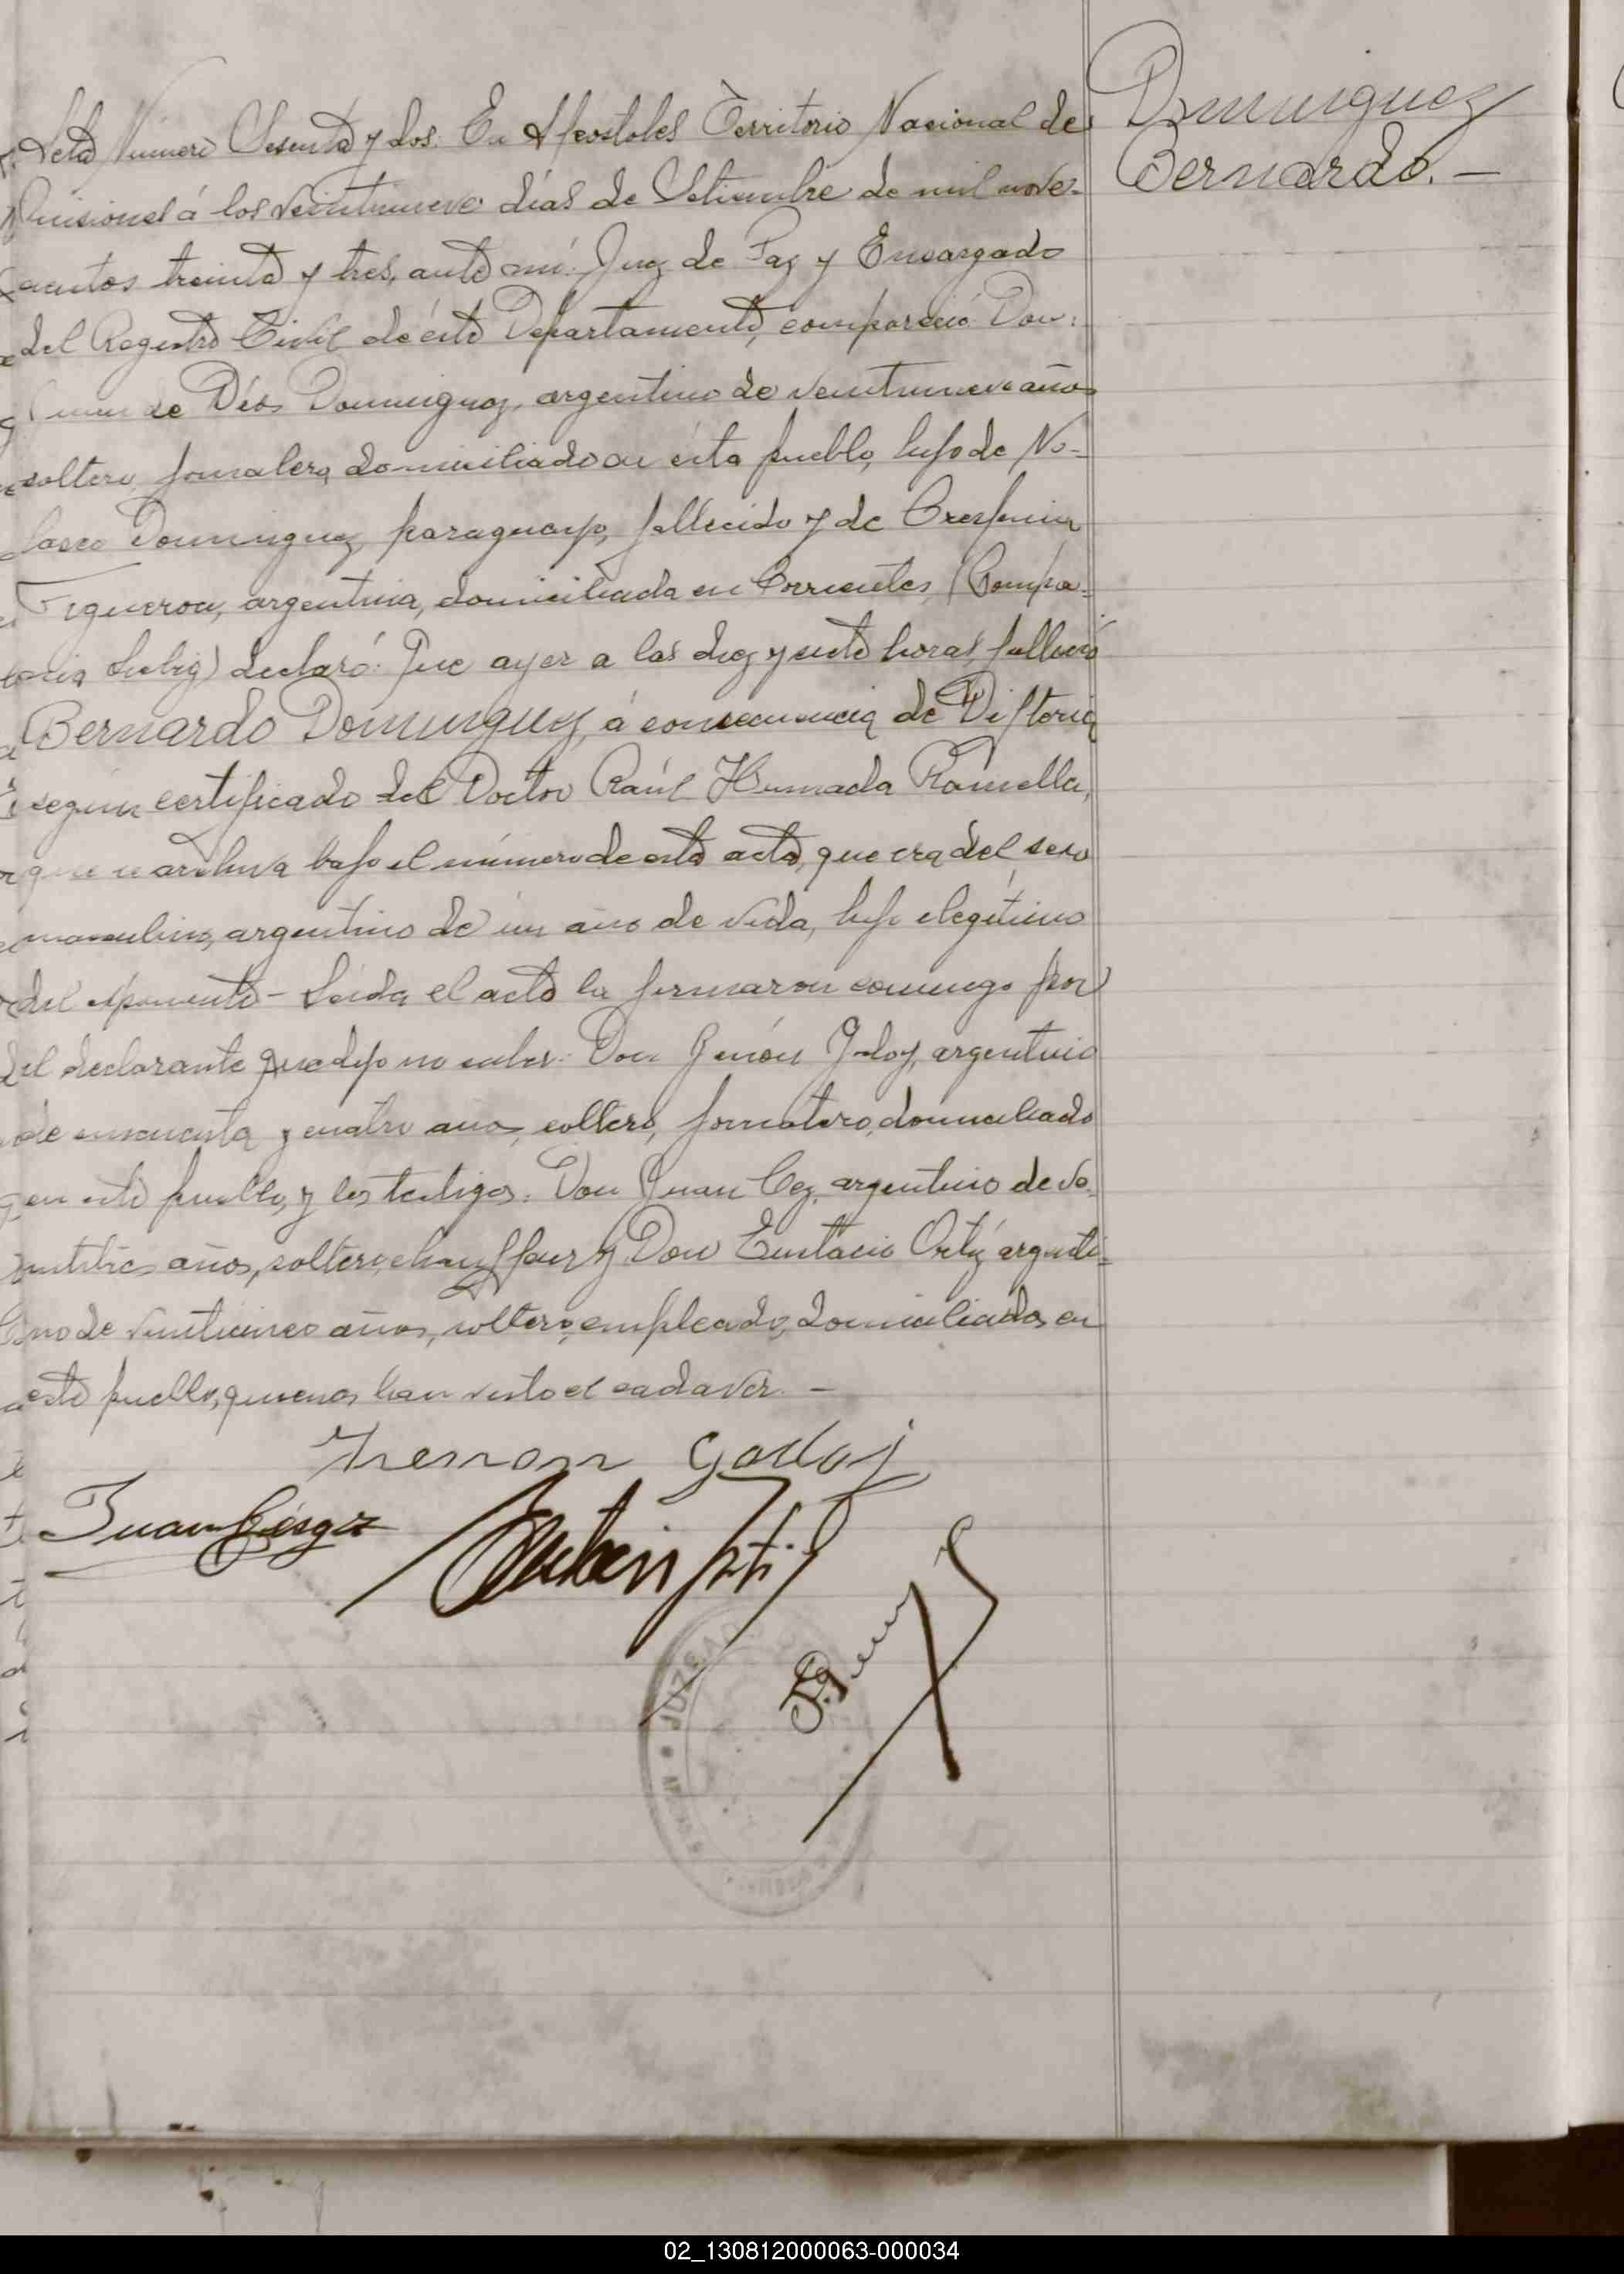 Acta Número Sesenta y dos. En Apostoles Territorio Nacional de
Misiones á los veintinueve días de Setiembre de mil nove-
cientos treinta y tres, ante mí: Juez de Paz y Encargado
del Registro Civil de éste Departamento, compareció Don:
Juan de Dios Dominguez, argentino de veintinueve años
soltero, jornalero, domiciliado en ésta pueblo, hijo de No-
lasco Dominguez, paraguayo, fallecido y de Crespina
Figueroa, argentina, domiciliada en Corrientes, (Compa-
Liebig) declaró: Que ayer a las diez y siete horas, falleció
Bernardo Dominguez, á consecuencia de Difteria
según certificado del Doctor Raúl Humada Ramella,
que se archiva bajo el número de esta acta, que era del sexo
masculino, argentino de un año de vida, hijo elegítimo
del exponente - Leida el acta la firmaron conmigo por
el declarante que dijo no saber: Don Zenón Godoy, argentino
de cincuenta y cuatro años, soltero, domiciliado
en este pueblo, y los testigos: Don Juan argentino de ve-
intitres años, soltero, chauffeur y Don Eustacio Ortiz argenti-
no de veinticinco años, soltero, empleado, domiciliados en
este pueblo, quienes han visto el cadaver. -
Zenon Godoy
Juan
JUZGADO
Dominguez
Bernardo. -
02_130812000063-000034